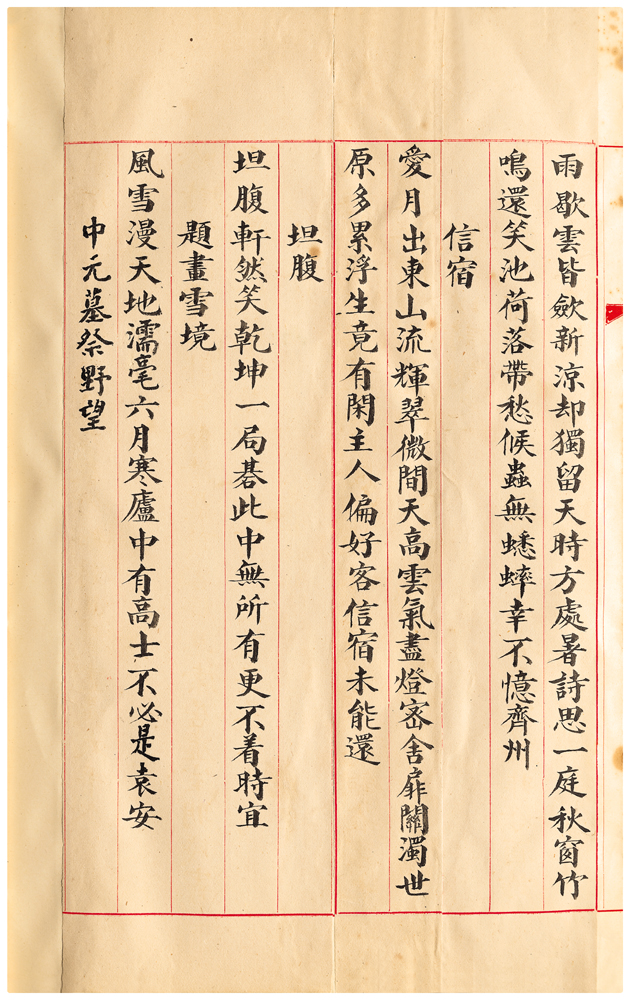 雨歇雲皆斂新涼却獨留天時方處暑詩思一庭秋窗竹
鳴還笑池荷落帶愁候蟲無蟋蟀幸不憶齊州
信宿
愛月出東山流輝翠微間天高雲氣盡燈密舍扉關濁世
原多累浮生竟有閑主人偏好客信宿未能還
坦腹
坦腹軒然笑乾坤一局碁此中無所有更不着時宜
題畫雪境
風雪漫天地濡毫六月寒廬中有高士不必是袁安
中元墓祭野望